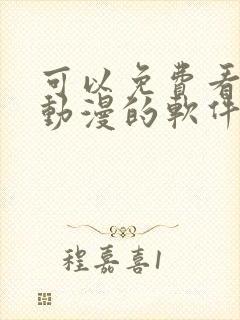 可以免費看
動漫的軟件
程嘉喜1